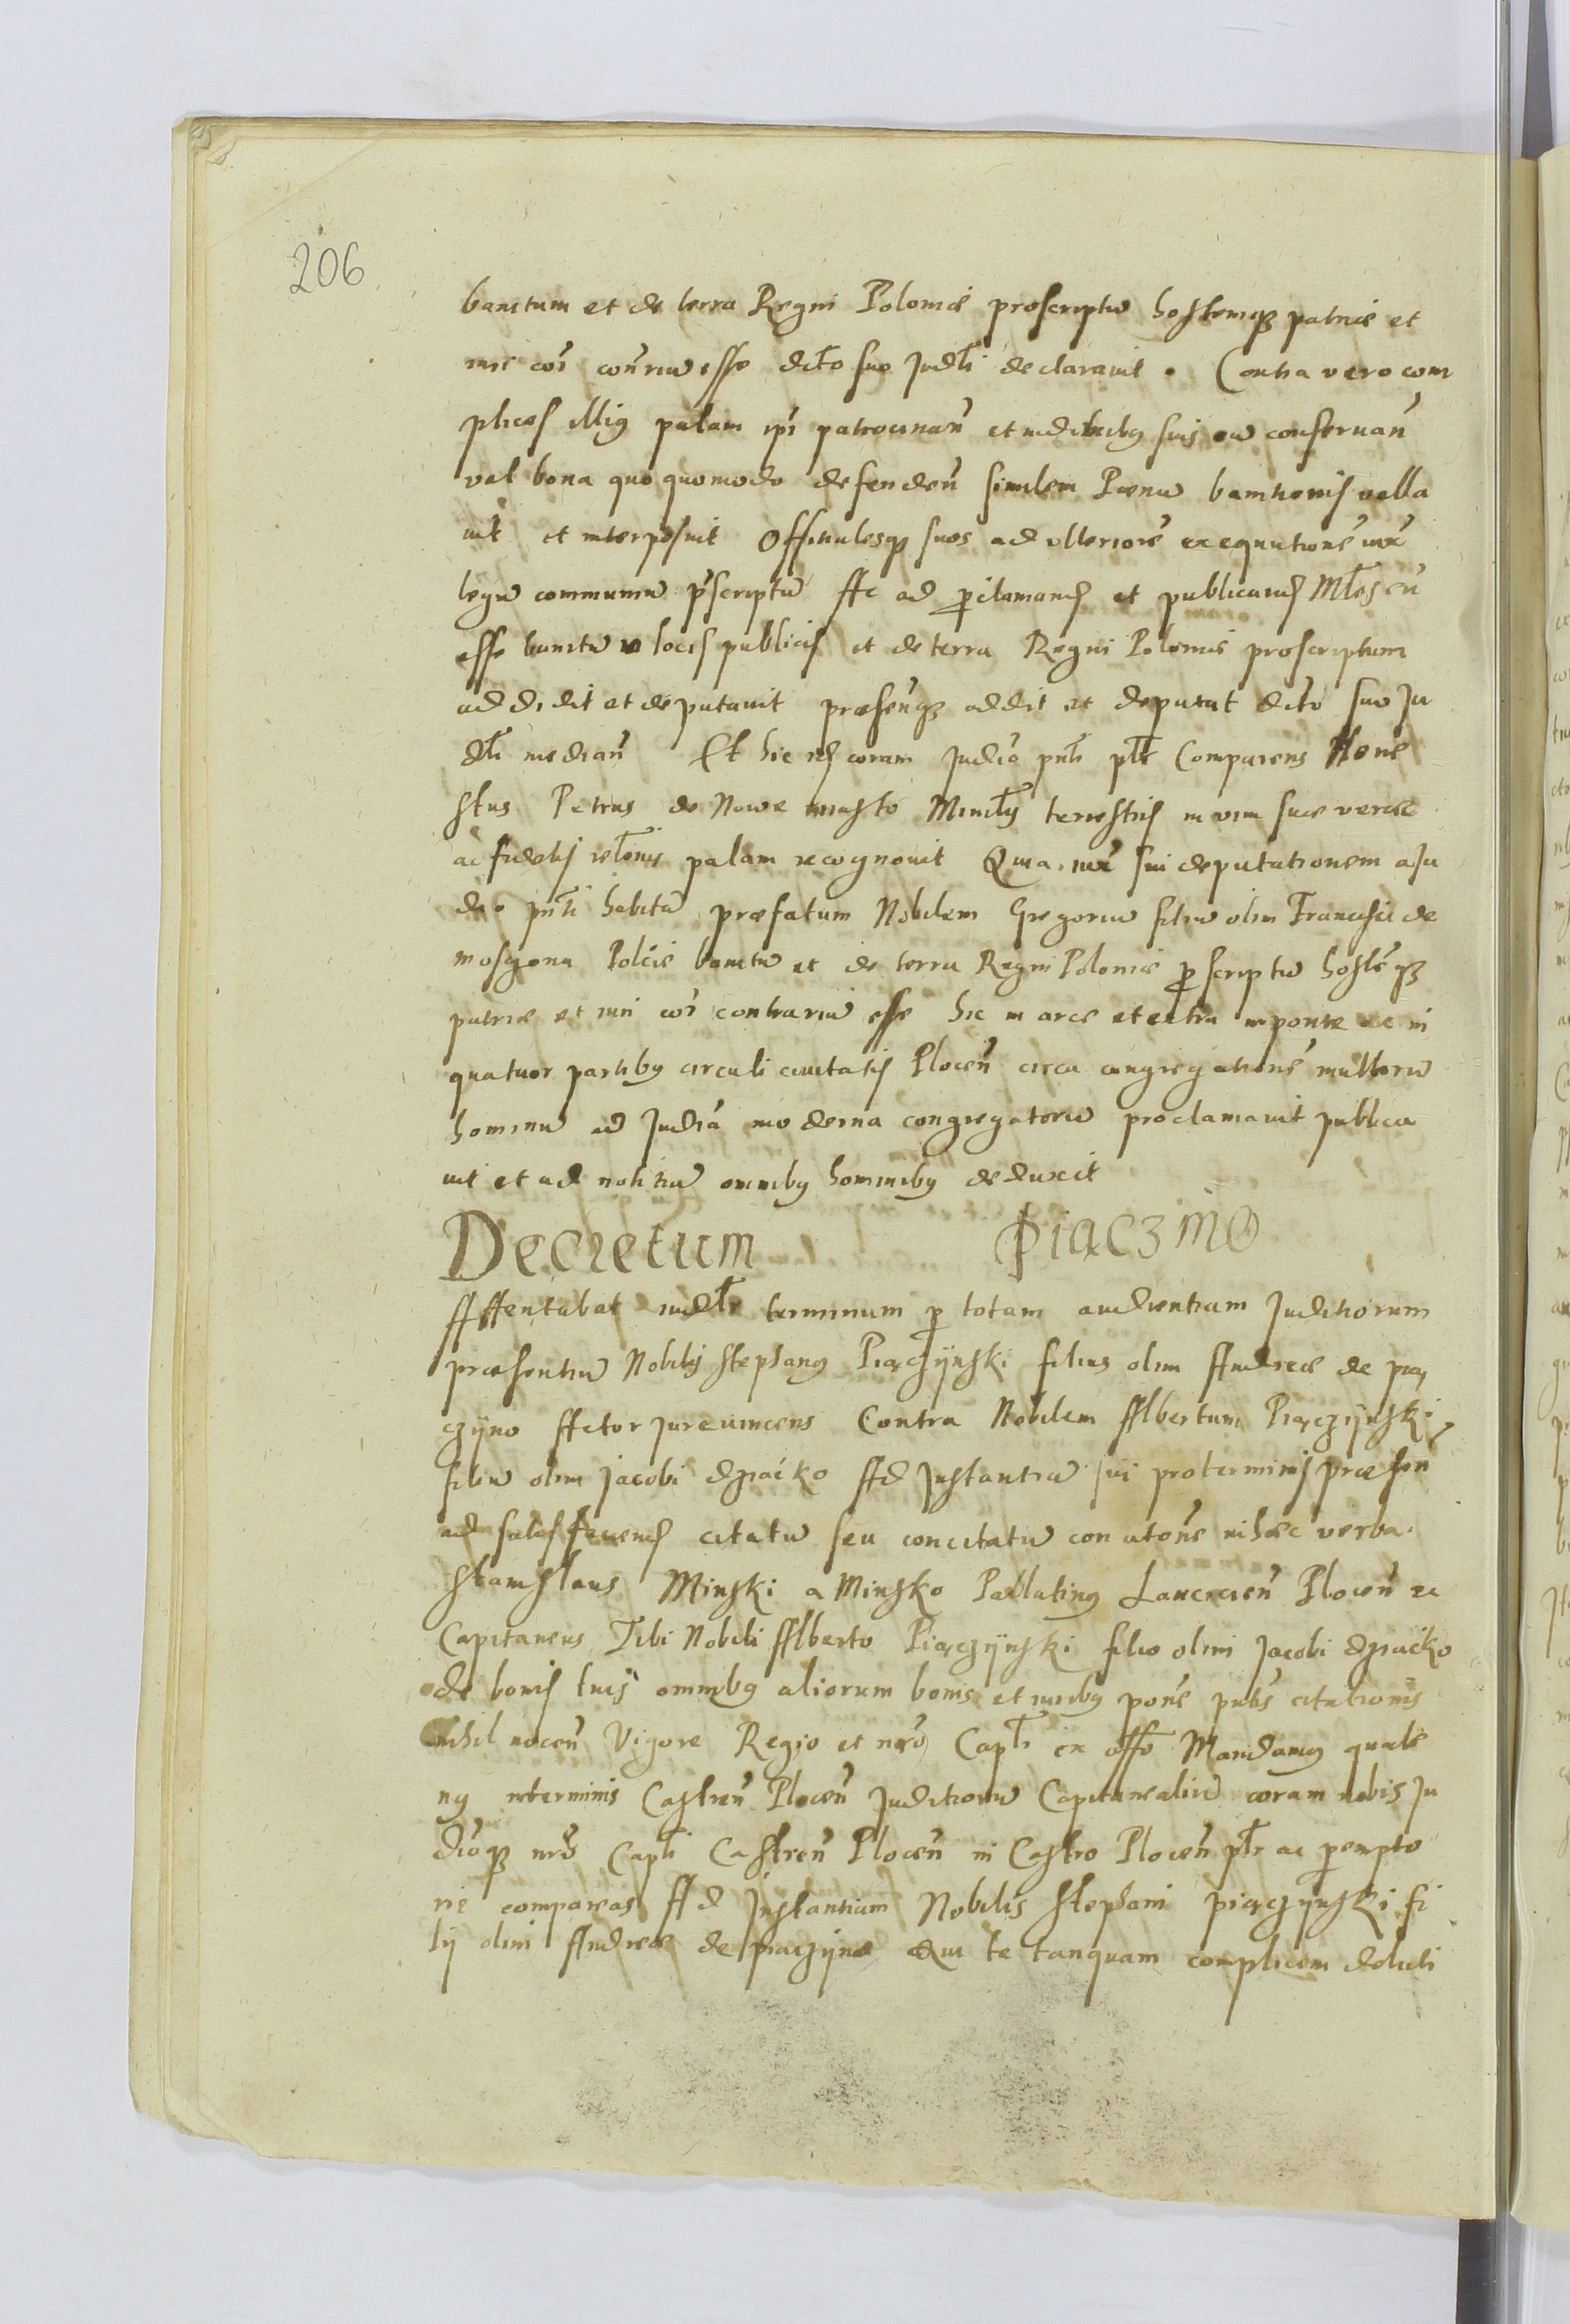 206
banitum et de terra Regni Poloniæ proscriptū hostemq₃ patriæ et
iuri cōī con̄riū esse dc̄to suo Judc̄li declarauit . Contra vero com
plices illi9 palam ipī patrocinan̄ et in ædibus suis eū conseruan̄
vel bona quoquomodo defenden̄ similem Pænā banitionis valla
uit et interposuit Officialesq₃ suos ad vlteriorē exequutionē iux̄
legū communiū p̄scriptū Ac ad proclamand et publicand
esse banitū in locis publicis et de terra Regni Poloniæ proscriptum
addidit et deputauit præsen̄q₃ addit et deputat dc̄to suo Ju
dc̄li median̄ Et hic id coram Judic̄o pn̄ti plr̄ Comparens Hone
stus Petrus de Nowe miasto Minl̄is terrestris in vim suæ veræ
ac fidelis rel̄onis palam recognouit Quia iux̄ sui deputationem a Ju
dic̄o pn̄ti habitā præfatum Nobilem Gregoriū filiū olim Francisci de
mosgona Polciæ banitū et de terra Regni Poloniæ proscriptū hostē q₃
patriæ et iuri cōī contrariū esse hic in arce et extra in ponte ac in
quatuor partib9 circuli ciuitatis Plocen̄ circa congregationē multorū
hominū ad Judicā moderna congregatorū proclamauit publica
uit et ad notitiā omnib9 hominib9 deduxit
Decretum Piączino
Attentabat iudl̄r terminum p totam audientiam Juditiorum
præsentiū Nobilis Stephan9 Piączÿnski filius olim Andreæ de pią
czÿno Actor Jureuincens Contra Nobilem Albertum Piączÿnski
filiū olim Jacobi dziaćko Ad Instantiā sui pro terminis præsen
ad satisfaciend citatū seu concitatū con atōne in hæc verba.
Stanislaus Minski a Minsko Pallatin9 Lancicien̄ Plocen̄ zc
Capitaneus Tibi Nobili Alberto Piączÿnski filio olim Jacobi dziaćko
de bonis tuis omnib9 aliorum bonis et iurib9 pōne pn̄tis citationis
nihil nocen̄ Vigore Regio et nrō Capl̄i ex offō Mandam9 quate
n9 in terminis Castren̄ Plocen̄ Juditiorū Capitanealiū coram nobis Ju
dic̄oq₃ nrō Capl̄i Castren̄ Plocen̄ in Castro Plocen̄ plr̄ ac perempto
rie compareas Ad Instantiam Nobilis Stephani Piączÿnski fi
lÿ olim Andreæ de piączÿno Qui te tanquam complicem deluti